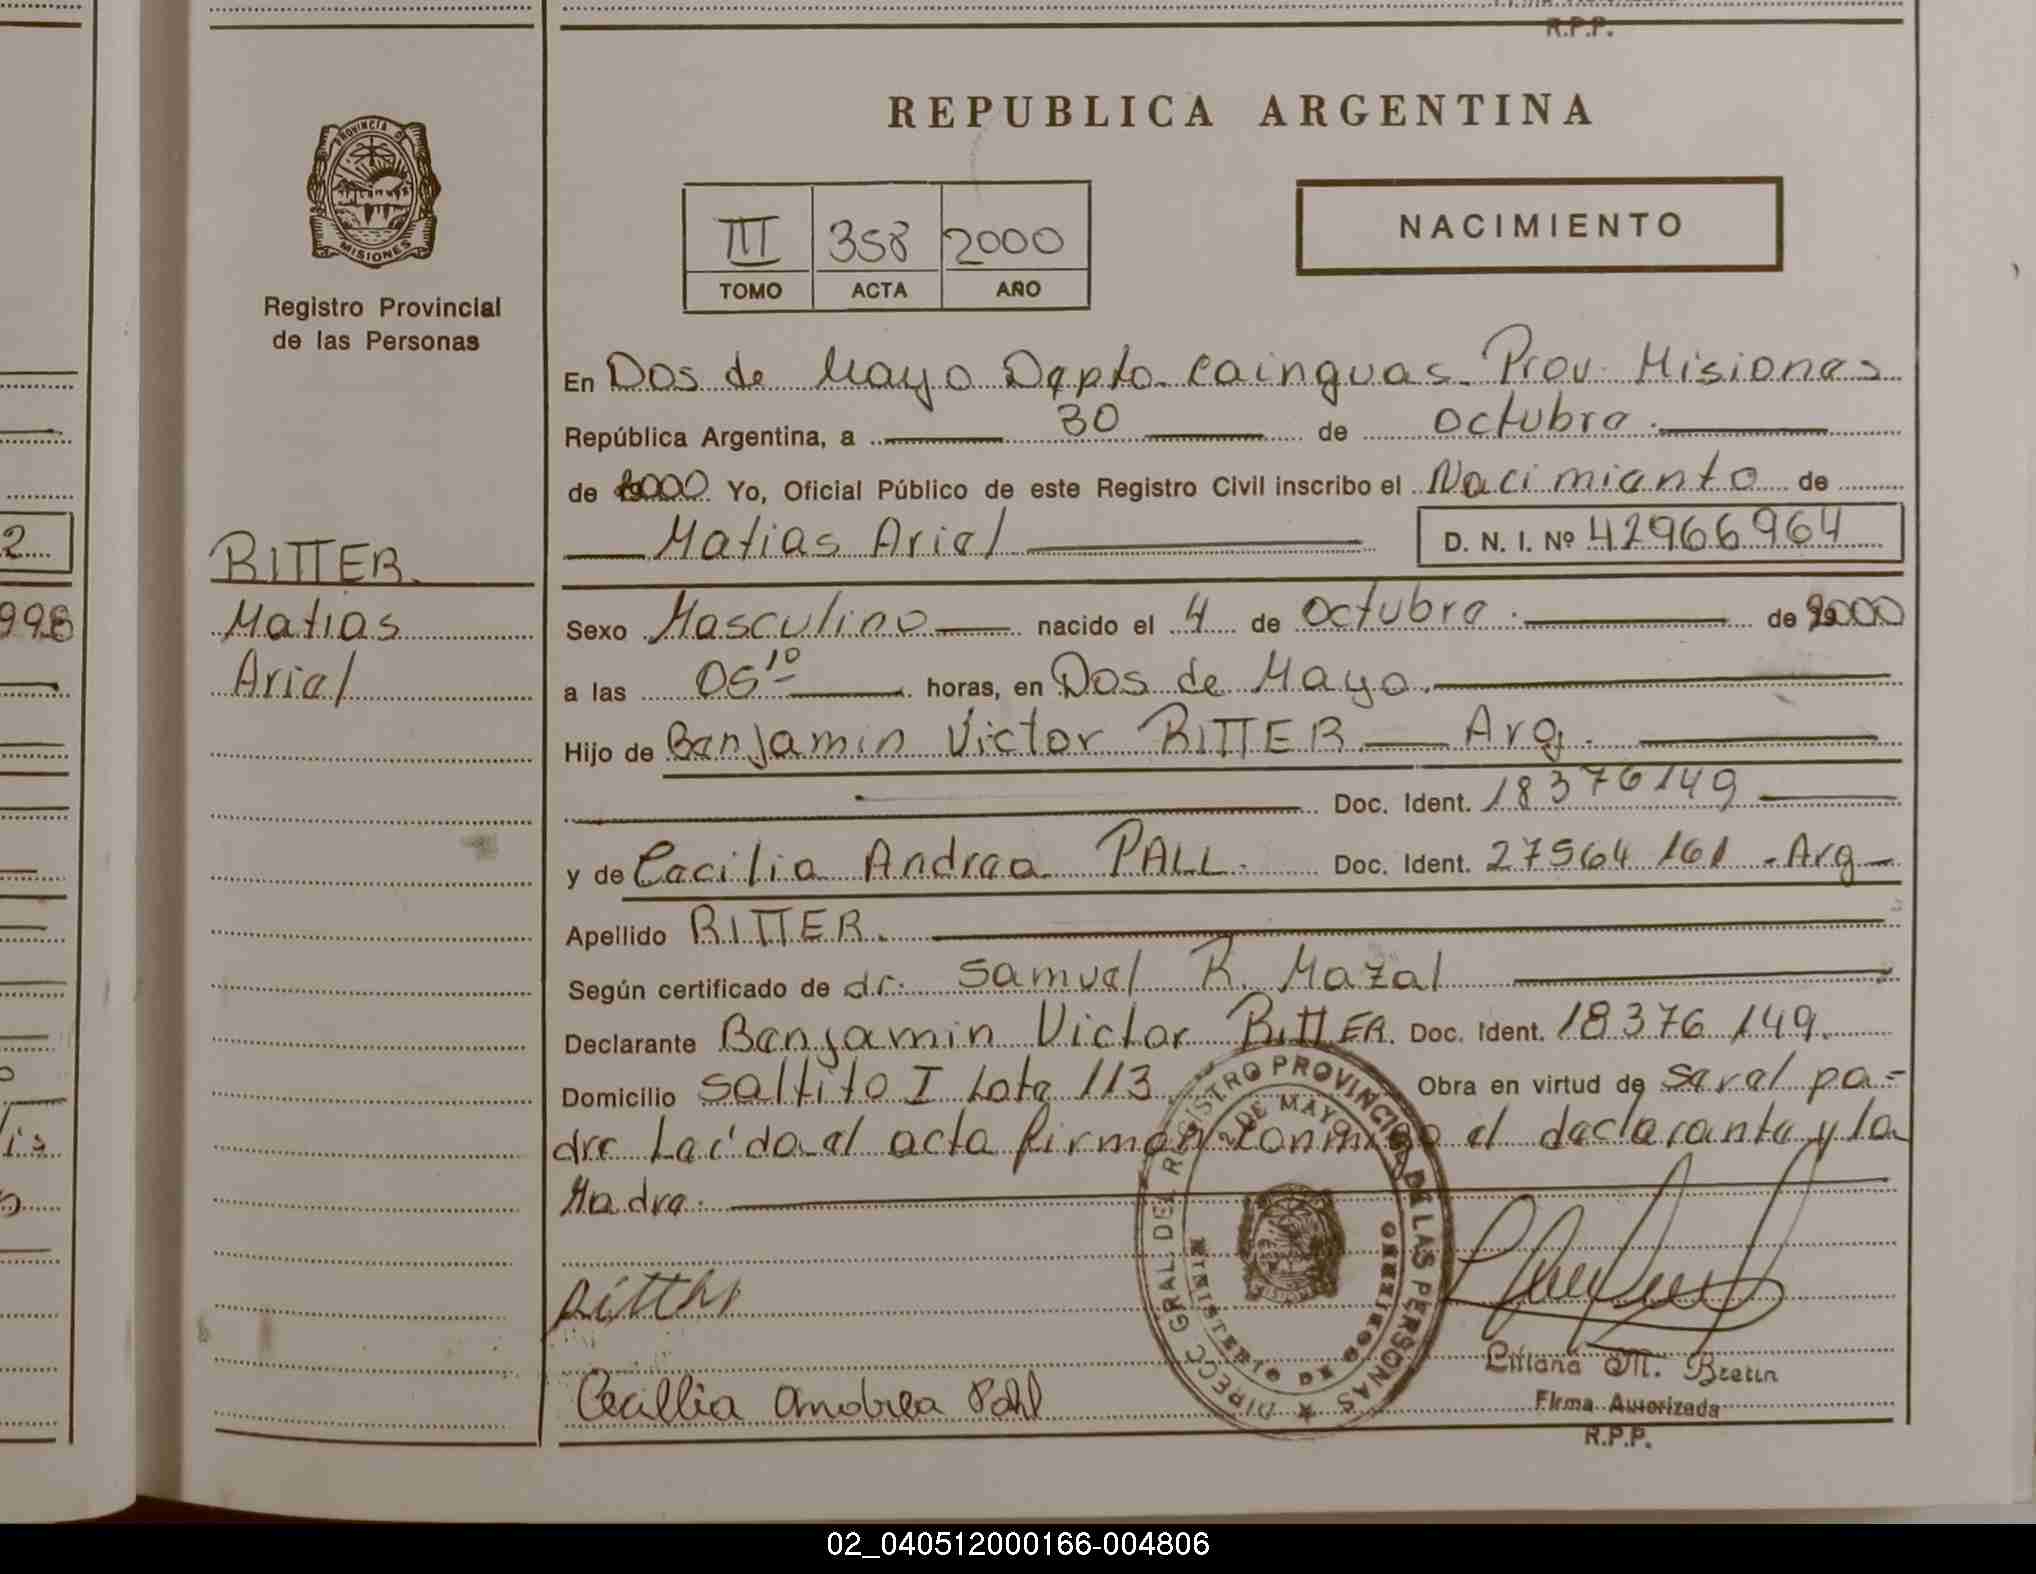 R.P.P.
REPUBLICA ARGENTINA
PROVINCIA DE
MISIONES
Registro Provincial
de las Personas
III 358 2000
TOMO ACTA AÑO
NACIMIENTO
En Dos de Mayo Depto. Cainguas. Prov. Misiones
República Argentina, a 30 de octubre.
de 2000 Yo, Oficial Público de este Registro Civil inscribo el Nacimiento de
Matias Ariel D. N. I. Nº 42966964
RITTER.
Matias
Ariel
2
998
Sexo Masculino nacido el 4 de octubre. de 2000
a las 05 10 horas, en Dos de Mayo.
Hijo de Benjamin Victor RITTER Arg.
Doc. Ident. 18376149
y de Cecilia Andrea PALL. Doc. Ident. 27564 161 - Arg
Apellido RITTER.
Según certificado de dr. Samuel R. Mazal
Declarante Benjamin Victor RITTER. Doc. Ident. 18376 149.
Domicilio Saltito I Lote 113. Obra en virtud de ser el pa-
dre Leída el acta firman conmigo el declarante y la
Madre.
DIRECC GRAL DEL REGISTRO PROVINCIAL DE LAS PERSONAS
2 DE MAYO
MINISTERIO DE GOBIERNO
MISIONES
Ritter
Cecillia Andrea Pohl
Liliana M. Brein
Firma Autorizada
R.P.P.
02_040512000166-004806